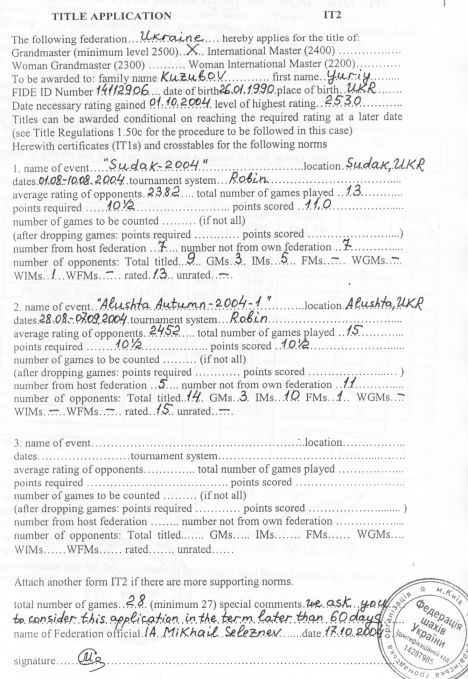 TITLE APPLICATION IT2
The following federation....Ukraine..... hereby applies for the title of:
Grandmaster (minimum level 2500)..X... International Master (2400) ............
Woman Grandmaster (2300) .......... Woman International Master (2200)............
To be awarded to: family name Kuzubov........... first name..Yuriy........
FIDE ID Number 14112906.... date of birth 26.01.1990. place of birth. UKR........
Date necessary rating gained 01.10.2004. level of highest rating...2530...........
Titles can be awarded conditional on reaching the required rating at a later date
(see Title Regulations 1.50c for the procedure to be followed in this case)
Herewith certificates (IT1s) and crosstables for the following norms
1. name of event...."Sudak-2004"............................location. Sudak, UKR
dates.01.08.-10.08.2004.tournament system....Robin..............................
average rating of opponents..2382.... total number of games played ..13..........
points required ......10½........................ points scored ...11,0...............
number of games to be counted .......... (if not all)
(after dropping games: points required ............ points scored ........................)
number from host federation ..7.... number not from own federation ..7..........
number of opponents: Total titled..9... GMs.3.. IMs..5.. FMs..–.. WGMs..–.
WIMs..1..WFMs..–.. rated.13.. unrated..–..
2. name of event.."Alushta Autumn-2004-1"..........location. Alushta, UKR
dates.28.08.-07.09.2004.tournament system....Robin..............................
average rating of opponents..2452.... total number of games played ..15..........
points required .......10½........................ points scored ..10½...............
number of games to be counted .......... (if not all)
(after dropping games: points required ............ points scored ........................ )
number from host federation ...5.... number not from own federation ..11..........
number of opponents: Total titled..14. GMs..3. IMs..10. FMs..1.. WGMs..–
WIMs..–.WFMs..–.. rated..15.. unrated..–..
3. name of event.......................................................location...................
dates........................tournament system..............................
average rating of opponents............. total number of games played ................
points required .............................. points scored ........................
number of games to be counted .......... (if not all)
(after dropping games: points required ............ points scored ........................ )
number from host federation ........ number not from own federation ................
number of opponents: Total titled....... GMs..... IMs....... FMs....... WGMs....
WIMs......WFMs...... rated....... unrated......
Attach another form IT2 if there are more supporting norms.
total number of games...28. (minimum 27) special comments. we ask you
to consider this application in the term later than 60 days
name of Federation official. IA Mikhail Seleznev......date.17.10.2004
signature
м.Київ
Федерація
шахів
України
Ідентифікаційний код
14287985